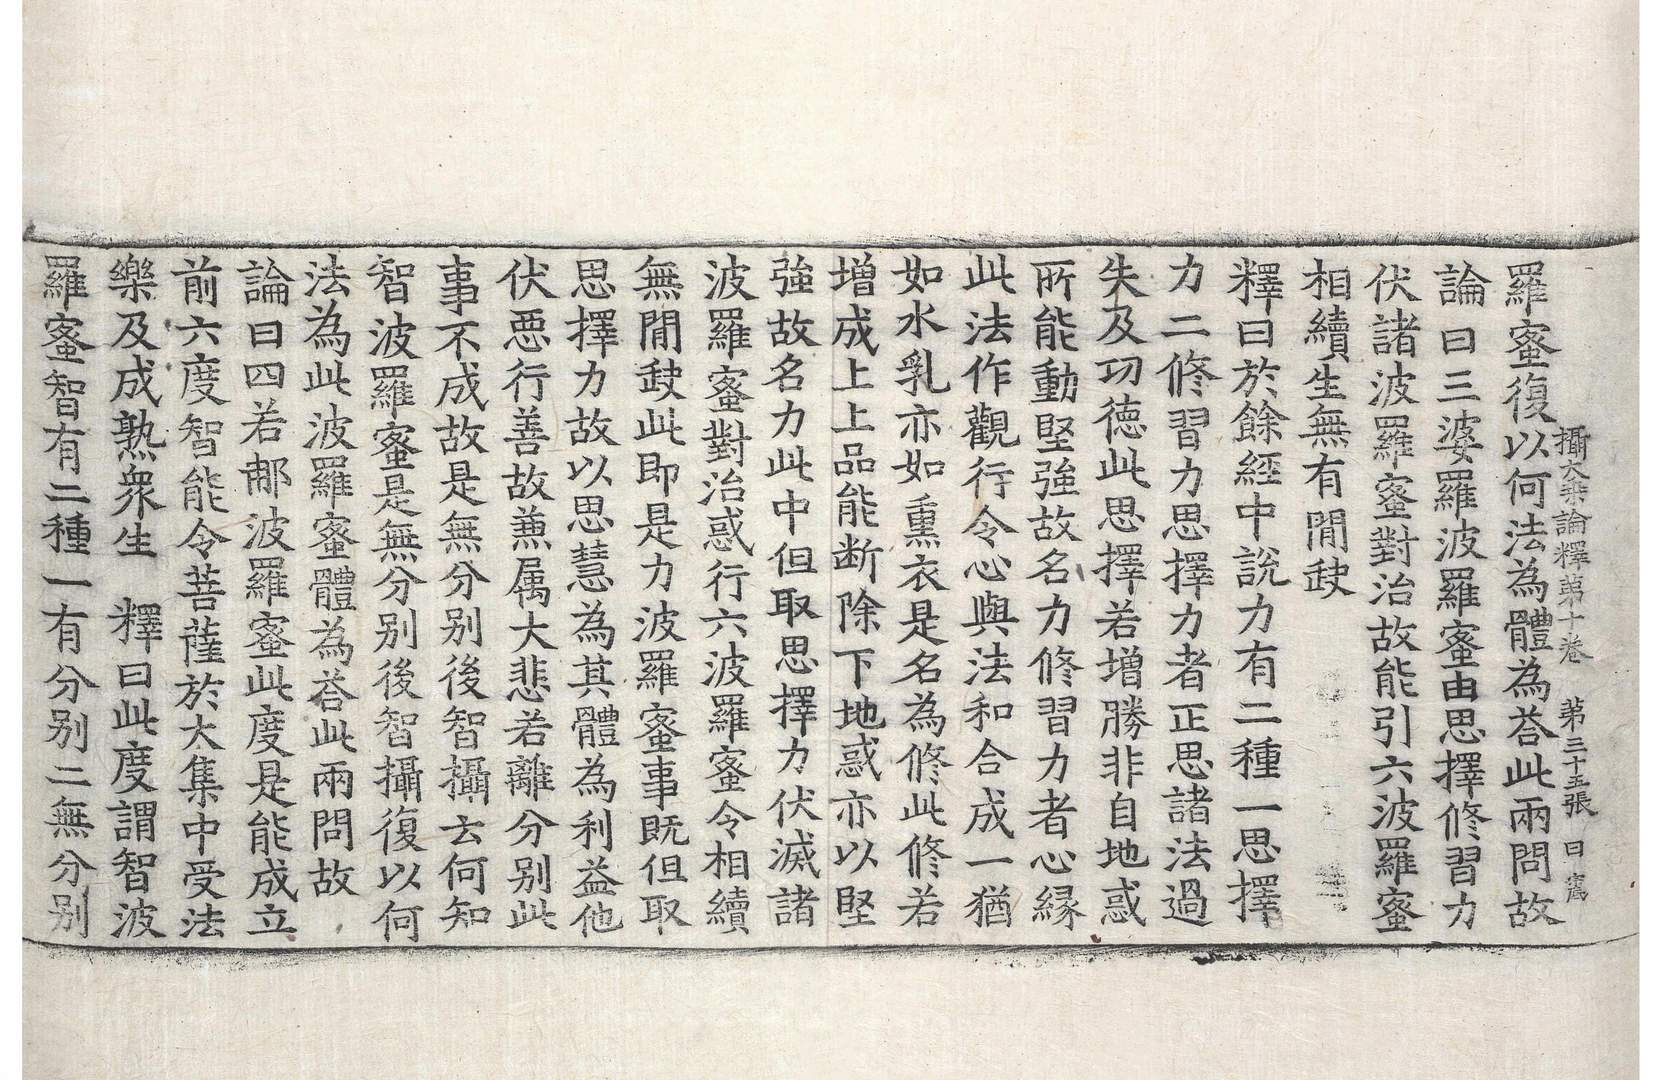 攝大乗論釋第十卷　第三十五張　日
羅蜜復以何法為體為荅此兩問故
論曰三婆羅波羅蜜由思擇修習力
伏諸波羅蜜對治故能引六波羅蜜
相續生無有閒𡙇
釋曰於餘經中說力有二種一思擇
力二修習力思擇力者正思諸法過
失及功德此思擇若增勝非自地惑
所能動堅強故名力修習力者心緣
此法作觀行令心與法和合成一猶
如水乳亦如熏衣是名為修此修若
增成上上品能断除下地惑亦以堅
強故名力此中但取思擇力伏滅諸
波羅蜜對治惑行六波羅蜜令相續
無閒𡙇此即是力波羅蜜事既但取
思擇力故以思慧為其體為利益他
伏惡行善故兼属大悲若離分別此
事不成故是無分别後智攝云何知
智波羅蜜是無分別後智攝復以何
法為此波羅蜜體為荅此兩問故
論曰四若那波羅蜜此度是能成立
前六度智能令菩薩於大集中受法
樂及成熟衆生　釋曰此度謂智波
羅蜜智有二種一有分别二無分别